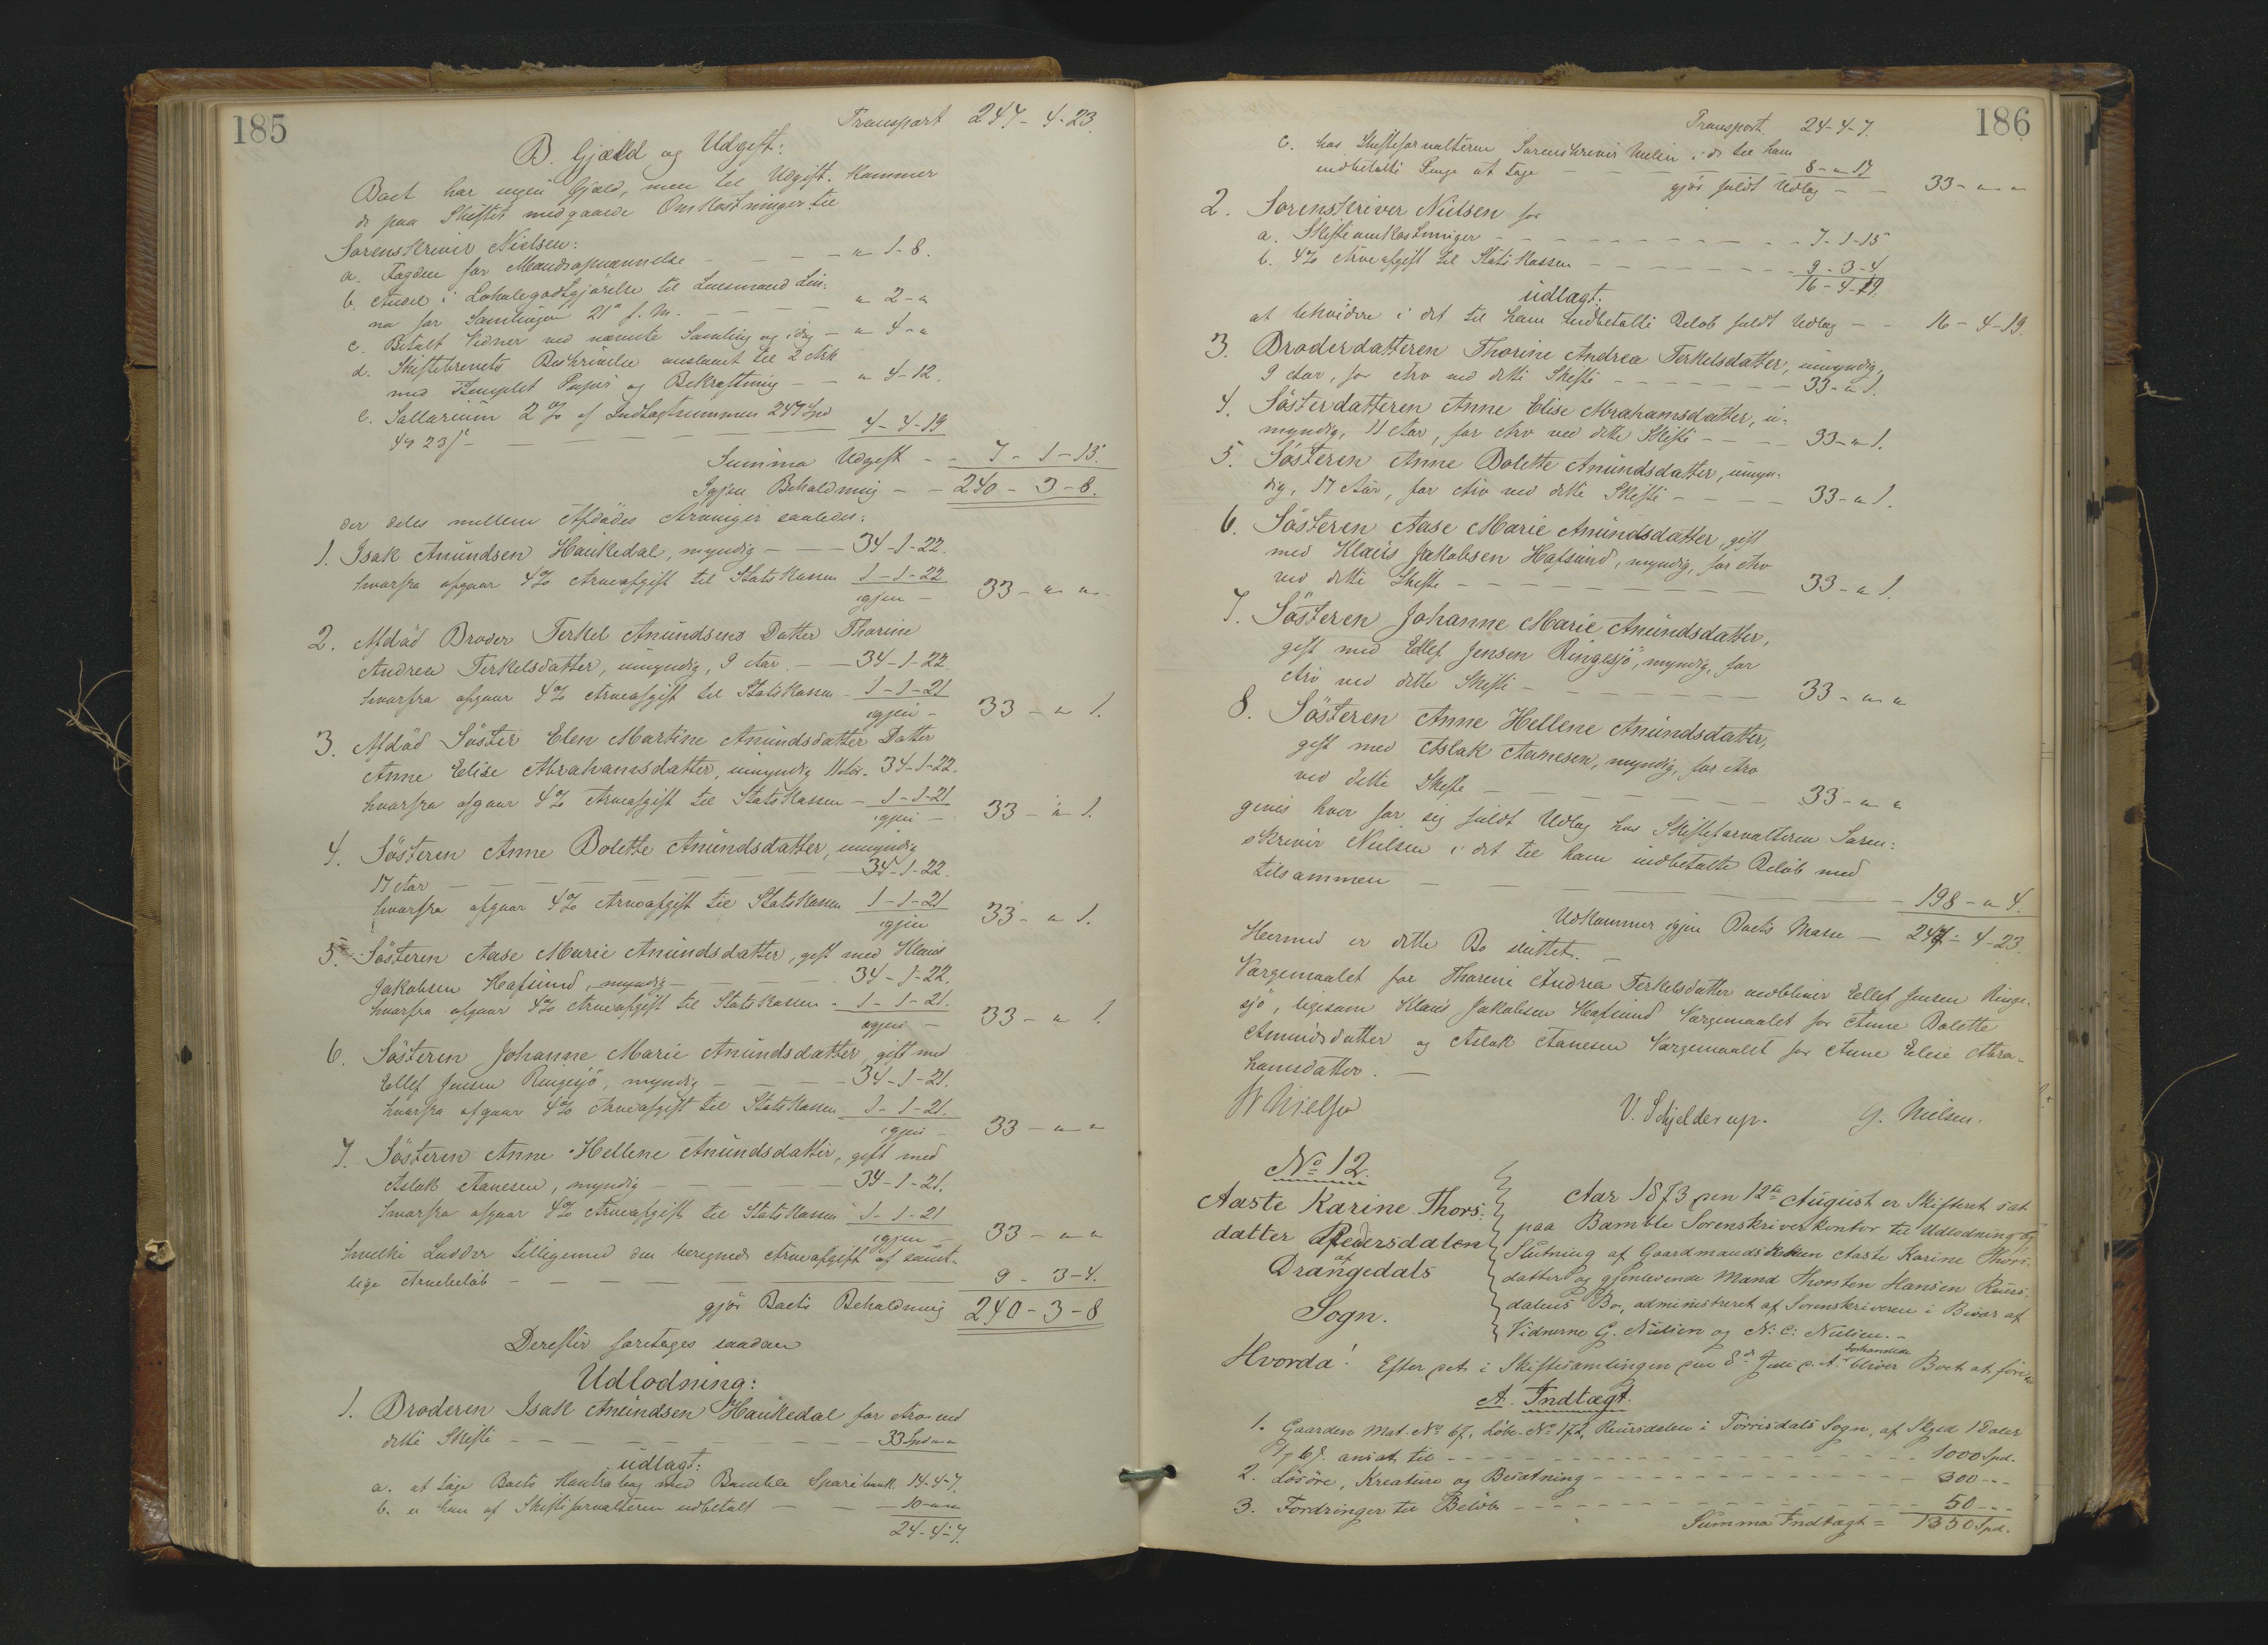 185
Transport 247 - 4 - 23.
B. Gjæld og Udgift:
Boet har ingen Gjæld, men til Udgift kommer
de paa Skiftet medgaaede Omkostninger til
Sorenskriver Nielsen:
a. Tagden for Mændsopnævnelse - - - - " 1 - 8.
b. Andel i Lokalegodtgjørelse til Lensmand Lin:
na for Samlingen 21de f. M. - - - - " 2 - "
c. Betalt Vidner ved nævnte Samling og idag - " 4 - "
d. Skiftebrevets Beskrivelse anslaaet til 2 Ark
med Stemplet Papir og Bekræftning - - " 4 - 12.
e. Sallarium 2 % af Indtægtsummen 247 Spd
4 23 - - - - 4 - 4 - 19
Summa Udgift - - 7 - 1 - 15.
Igjen Beholdning - - 240 - 3 - 8.
der deles mellem Afdødes Arvinger saaledes:
1. Isak Anundsen Haukedal, myndig - - - 34 - 1 - 22.
hvorfra afgaar 4% Arveafgift til Statskassen 1 - 1 - 22
igjen - 33 - " "
2. Afdød Broder Terkel Anundsens Datter Thorine
Andrea Terkelsdatter, umyndig, 9 Aar. - - 34 - 1 - 22.
hvorfra afgaar 4% Arveafgift til Statskassen - 1 - 1 - 21
igjen - 33 - " 1.
3. Afdød Søster Elen Martine Anundsdatters Datter
Anne Elise Abrahamsdatter, umyndig 11 Aar - 34 - 1 - 22.
hvorfra afgaar 4% Arveafgift til Statskassen - 1 - 1 - 21
igjen - 33 - " 1.
4. Søsteren Anne Bolette Anundsdatter, umyndig
17 Aar - - - - - 34 - 1 - 22.
hvorfra afgaar 4% Arveafgift til Statskassen 1 - 1 - 21
igjen 33 - " 1.
5. Søsteren Aase Marie Anundsdatter, gift med Klaus
Jakobsen Hafsund, myndig - - - 34 - 1 - 22.
hvorfra afgaar 4% Arveafgift til Statskassen - 1 - 1 - 21.
igjen - 33 - " 1.
6. Søsteren Johanne Marie Anundsdatter, gift med
Ellef Jensen Ringesjö, myndig - - - 34 - 1 - 21.
hvorfra afgaar 4% Arveafgift til Statskassen 1 - 1 - 21.
igjen - 33 - " "
7. Søsteren Anne Hellene Anundsdatter, gift med
Aslak Aanesen, myndig - - - - 34 - 1 - 21.
hvorfra afgaar 4% Arveafgift til Statskassen 1 - 1 - 21
igjen - 33 - " "
hvilke Lodder tilligemed den beregnede Arveafgift af samt-
lige Arvebeløb - - - - - 9 - 3 - 4.
gjør Boets Beholdning 240 - 3 - 8
Derefter foretages saadan
Udlodning:
1. Broderen Isak Anundsen Haukedal for Arv ved
dette Skifte - - - - - 33 Spd " "
udlagt:
a. at tage Boets Kontrabog med Bamble Sparebank 14 - 4 - 7.
b. er ham af Skifteforvalteren udbetalt - - - 10 - " "
24 - 4 - 7.
186
Transport 24 - 4 - 7.
c. hos Skifteforvalteren Sorenskriver Nielsen i de til ham
indbetalte Penge at tage - - - - - 8 - " 17
gjør fuldt Udlæg - - 33 - " "
2. Sorenskriver Nielsen for
a. Skifteomkostninger - - - - - 7 - 1 - 15
b. 4% Arveafgift til Statskassen - - - - - 9 - 3 - 4
16 - 4 - 19.
udlagt:
at likvidere i det til ham indbetalte Beløb fuldt Udlæg - - 16 - 4 - 19.
3. Broderdatteren Thorine Andrea Terkelsdatter, umyndig,
9 Aar, for Arv ved dette Skifte - - - - - 33 - " 1.
4. Søsterdatteren Anne Elise Abrahamsdatter, u-
myndig, 11 Aar, for Arv ved dette Skifte - - - 33 - " 1.
5. Søsteren Anne Bolette Anundsdatter, umyn-
dig, 17 Aar, for Arv ved dette Skifte - - - 33 - " 1.
6. Søsteren Aase Marie Anundsdatter, gift
med Klaus Jakobsen Hafsund, myndig, for Arv
ved dette Skifte - - - - - 33 - " 1.
7. Søsteren Johanne Marie Anundsdatter,
gift med Ellef Jensen Ringesjö, myndig, for
Arv ved dette Skifte - - - - - 33 - " "
8. Søsteren Anne Hellene Anundsdatter,
gift med Aslak Aanesen, myndig, for Arv
ved dette Skifte - - - - - 33 - " "
gives hver for sig fuldt Udlæg hos Skifteforvalteren Soren:
skriver Nielsen i det til ham indbetalte Beløb med
tilsammen - - - - - 198 - " 4.
Udkommer igjen Boets Masse - 247 - 4 - 23.
Hermed er dette Bo sluttet. -
Værgemaalet for Thorine Andrea Terkelsdatter vedbliver Ellef Jensen Ringe-
sjö, ligesom Klaus Jakobsen Hafsund Værgemaalet for Anne Bolette
Anundsdatter og Aslak Aanesen Værgemaalet for Anne Elise Abra-
hamsdatter. -
Nielsen
V. Schjelderup. G. Nielsen.
No 12.
Aaste Karine Thors:
datter
af
Drangedals
Sogn.
Aar 1873 den 12te August er Skifteret sat
paa Bamble Sorenskriverkontor til Udlodning og
Slutning af Gaardmandskonen Aaste Karine Thors-
datter og gjenlevende Mand Thorsten Hansen
Bo, administreret af Sorenskriveren i Bivær af
Vidnerne G. Nielsen og N. C. Nielsen. -
Hvorda! Efter det i Skiftesamlingen den 8de Juli d. A. forhandlede bliver Boet at føre
A. Indtægt.
1. Gaarden Mat. No 67, Løbe-No 172, i Tørrisdals Sogn, af Skyld 1 Daler
ansat til - - - - - 1000 Spd.
2. Løsøre, Kreature og Besætning - - - - - 300 - " -
3. Fordringer til Beløb - - - - - 50 - " -
Summa Indtægt = 1350 Spd.